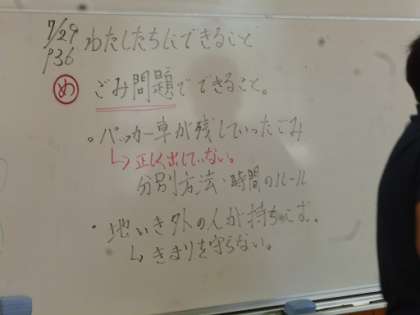 7/29 わたしたちにできること
P36
め ごみ問題でできること。
・パッカー車が残していったごみ
↳正しく出していない。
分別方法・時間のルール
・地いき外の人が持ちこむ。
↳きまりを守らない。